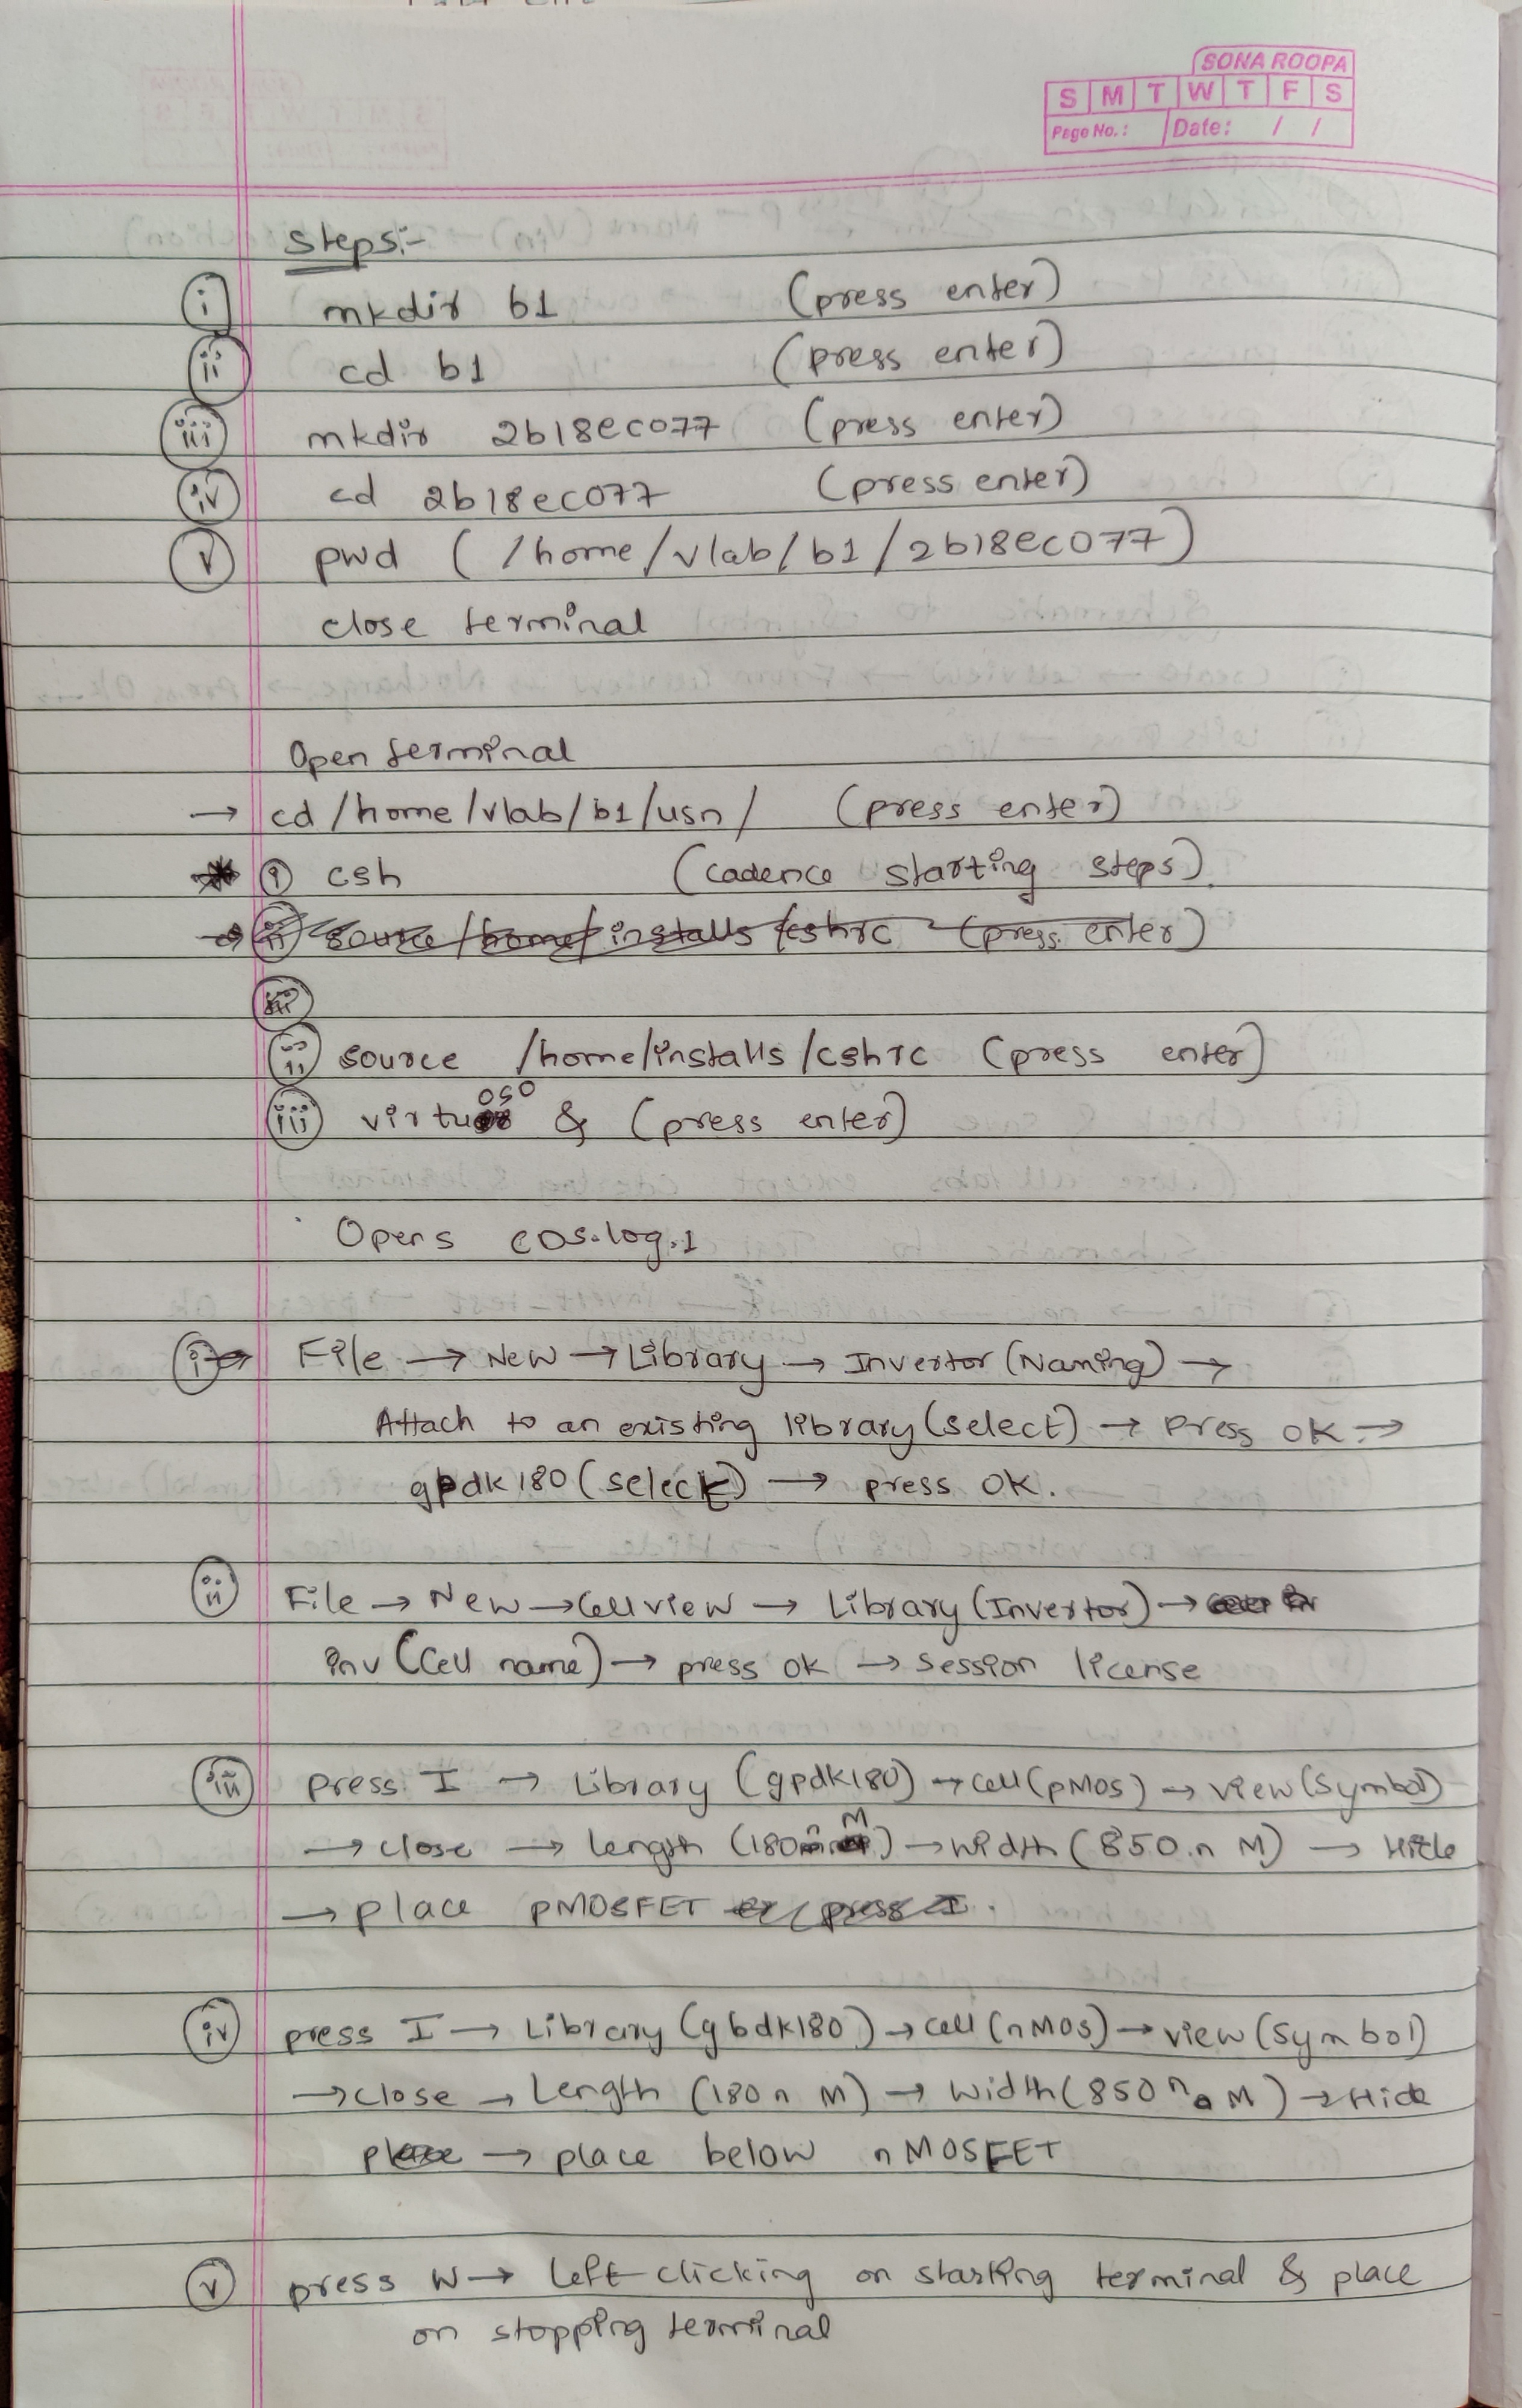 SONA ROOPA
S M T W T F S
Page No.: Date: / /
Steps:-
i mkdir b1 (press enter)
ii cd b1 (press enter)
iii mkdir 2b18ec077 (press enter)
iv cd 2b18ec077 (press enter)
v pwd ( /home/vlab/b1/2b18ec077)
close terminal
Open terminal
→ cd /home/vlab/b1/usn/ (press enter)
i csh (cadence starting steps).
→ ii source /home/installs/cshrc (press enter)
ii source /home/installs/cshrc (press enter)
iii virtuoso & (press enter)
Opens cds.log.1
i → File → New → Library → Invertor (Naming) →
Attach to an existing library (select) → press ok →
gpdk180 (select) → press OK.
ii File → New → Cellview → Library (Invertor) →
inv (Cell name) → press ok → session license
iii press I → Library (gpdk180) → cell (pMOS) → view (symbol)
→ close → length (180n M) → width (850.n M) → Hide
→ place pMOSFET press I.
iv press I → Library (gbdk180) → cell (nMOS) → view (symbol)
→ close → Length (180n M) → width (850 n M) → Hide
place → place below nMOSFET
v press W → left clicking on starting terminal & place
on stopping terminal